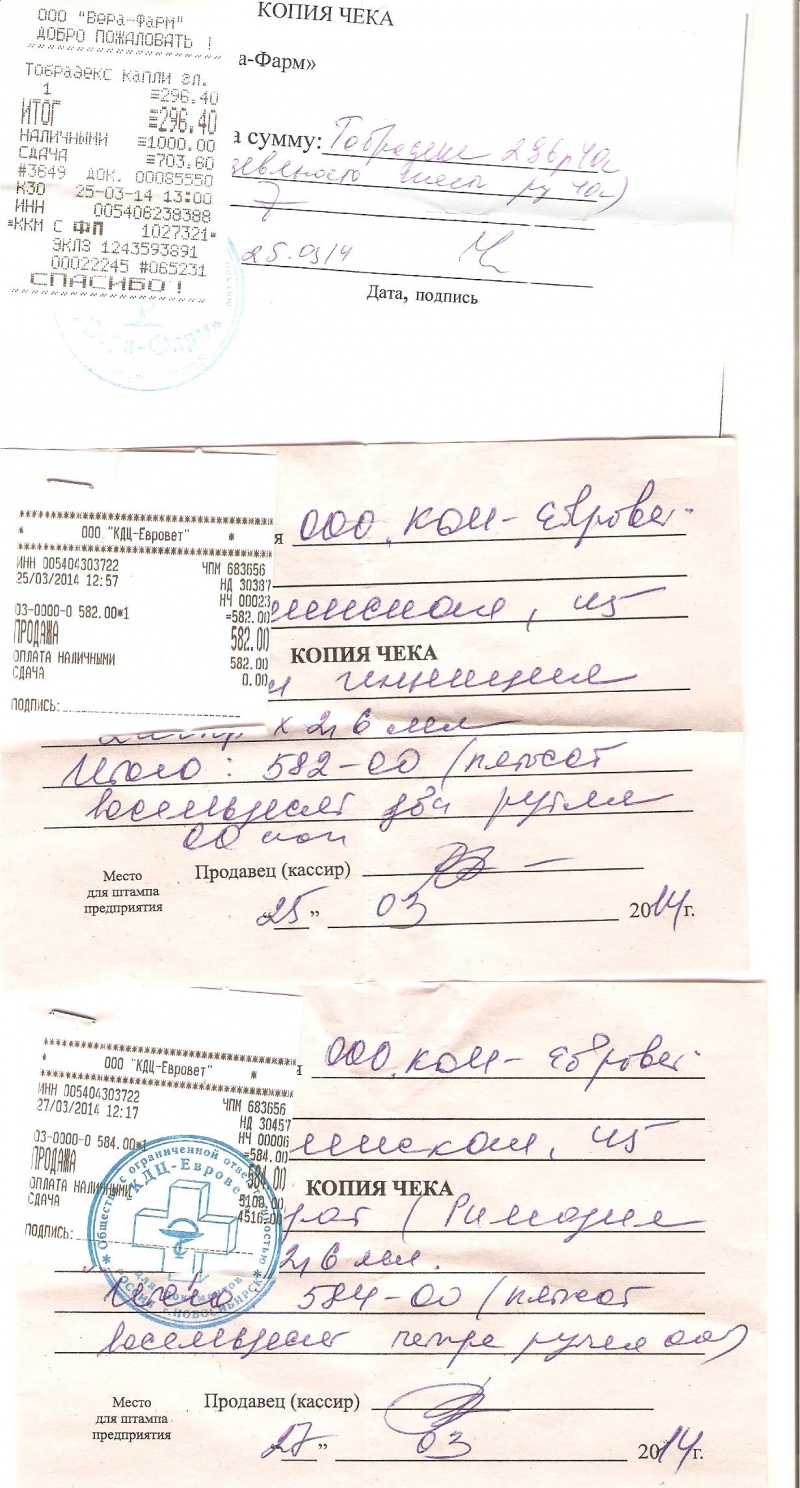 ООО "Вера-Фарм"
ДОБРО ПОЖАЛОВАТЬ !
Тобрадекс капли гл.
1 =296.40
ИТОГ =296.40
НАЛИЧНЫМИ =1000.00
СДАЧА =703.60
#3649 ДОК. 00085550
К30 25-03-14 13:00
ИНН 005406238388
*ККМ С ФП 1027321*
ЭКЛЗ 1243593891
00022245 #065231
СПАСИБО !
КОПИЯ ЧЕКА
а-Фарм»
а сумму: Тобрадекс 296р40к
шесть ру 40к)
25.03.14
Дата, подпись
«Вера-Фарм»
* ООО "КДЦ-Евровет" *
ИНН 005404303722 ЧПМ 683656
25/03/2014 12:57 НД 30387
НЧ 00023
03-0000-0 582.00*1 =582.00
ПРОДАЖА 582.00
ОПЛАТА НАЛИЧНЫМИ 582.00
СДАЧА 0.00
ПОДПИСЬ:
я ООО КДЦ-Евровет
, 45
КОПИЯ ЧЕКА
х 2,6 мл
Итого: 582-00 (пятьсот
восемьдесят два рубля
00 коп
Место
для штампа
предприятия
Продавец (кассир)
„25” 03 2014 г.
* ООО "КДЦ-Евровет" *
ИНН 005404303722 ЧПМ 683656
27/03/2014 12:17 НД 30457
НЧ 00006
03-0000-0 584.00*1 =584.00
ПРОДАЖА 584.00
ОПЛАТА НАЛИЧНЫМИ 5100.00
СДАЧА 4516.00
ПОДПИСЬ:
Общество с ограниченной ответственностью
КДЦ-Евровет
Для документов
РОССИЯ г.НОВОСИБИРСК
я ООО КДЦ-Евровет
, 45
КОПИЯ ЧЕКА
рат (Римадил
2,6 мл.
Итого 584-00 (пятьсот
восемьдесят четыре рубля 00)
Место
для штампа
предприятия
Продавец (кассир)
27” 03 2014 г.